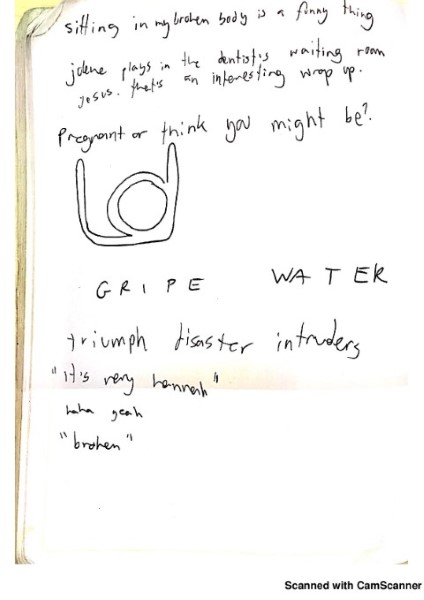 sitting in my broken body is a funny thing
jolene plays in the dentist's waiting room
jesus. that's an interesting wrap up.
Pregnant or think you might be?
GRIPE WATER
triumph disaster intruders
"it's very hannah"
haha yeah
"broken"
Scanned with CamScanner